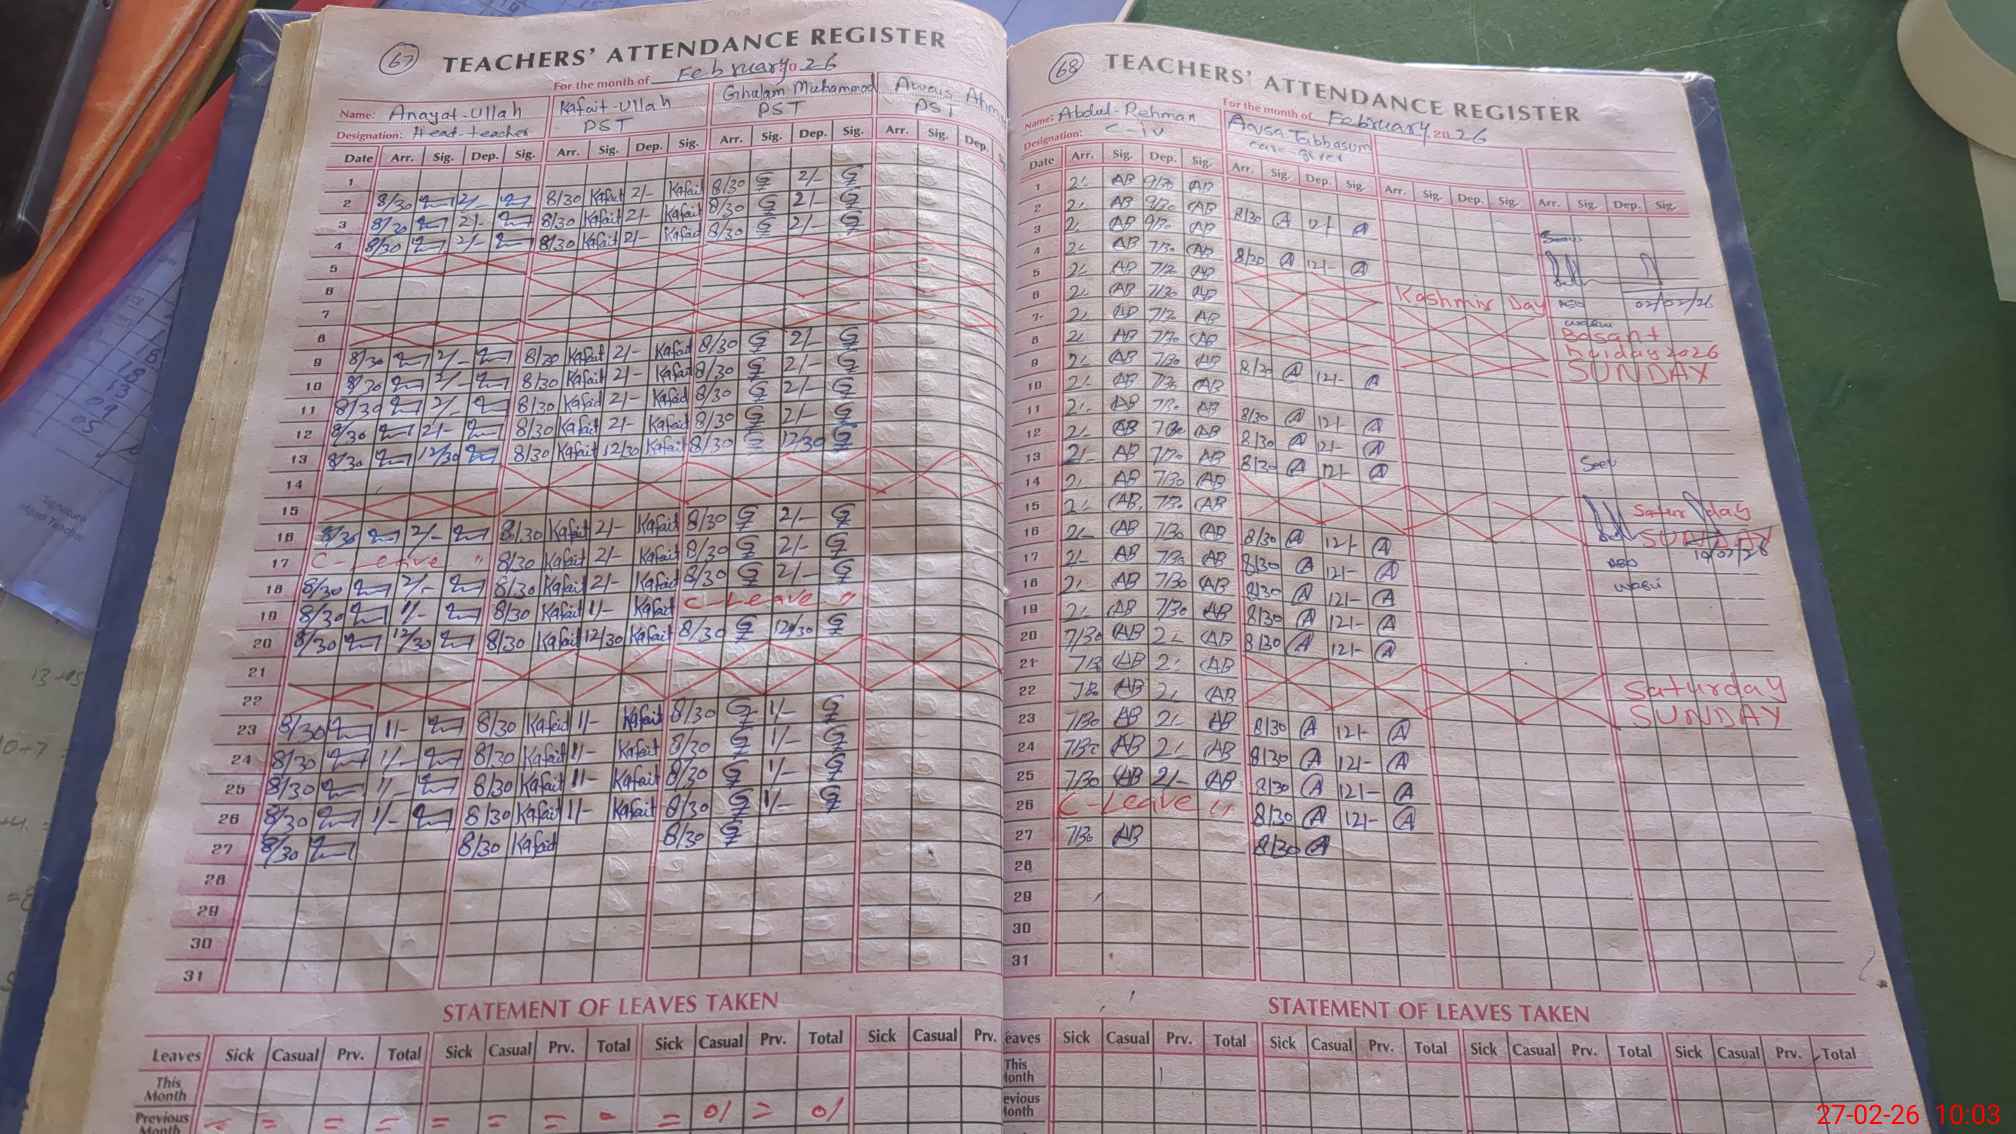 67
TEACHERS' ATTENDANCE REGISTER
For the month of February 2026
Name: Anayat-Ullah Kafait-Ullah Ghulam Muhammad Awais
Designation: Head teacher PST PST PST
Date Arr. Sig. Dep. Sig. Arr. Sig. Dep. Sig. Arr. Sig. Dep. Sig. Arr. Sig. Dep.
1
2 8/30 2/- 8/30 Kafait 2/- Kafait 8/30 G 2/- G
3 8/30 2/- 8/30 Kafait 2/- Kafait 8/30 G 2/- G
4 8/30 2/- 8/30 Kafait 2/- Kafait 8/30 G 2/- G
5
6
7
8
9 8/30 2/- 8/30 Kafait 2/- Kafait 8/30 G 2/- G
10 8/30 2/- 8/30 Kafait 2/- Kafait 8/30 G 2/- G
11 8/30 2/- 8/30 Kafait 2/- Kafait 8/30 G 2/- G
12 8/30 2/- 8/30 Kafait 2/- Kafait 8/30 G 2/- G
13 8/30 12/30 8/30 Kafait 12/30 Kafait 8/30 G 12/30 G
14
15
16 8/30 2/- 8/30 Kafait 2/- Kafait 8/30 G 2/- G
17 C-Leave " 8/30 Kafait 2/- Kafait 8/30 G 2/- G
18 8/30 2/- 8/30 Kafait 2/- Kafait 8/30 G 2/- G
19 8/30 1/- 8/30 Kafait 1/- Kafait C-Leave "
20 8/30 12/30 8/30 Kafait 12/30 Kafait 8/30 G 12/30 G
21
22
23 8/30 1/- 8/30 Kafait 1/- Kafait 8/30 G 1/- G
24 8/30 1/- 8/30 Kafait 1/- Kafait 8/30 G 1/- G
25 8/30 1/- 8/30 Kafait 1/- Kafait 8/30 G 1/- G
26 8/30 1/- 8/30 Kafait 1/- Kafait 8/30 G 1/- G
27 8/30 8/30 Kafait 8/30 G
28
29
30
31
STATEMENT OF LEAVES TAKEN
Leaves Sick Casual Prv. Total Sick Casual Prv. Total Sick Casual Prv. Total Sick Casual Prv.
This Month
Previous Month = = = = = = = 01 = 01
68
TEACHERS' ATTENDANCE REGISTER
For the month of February 2026
Name: Abdul-Rehman Tabbasum
Designation: C-iv care-giver
Date Arr. Sig. Dep. Sig. Arr. Sig. Dep. Sig. Arr. Sig. Dep. Sig. Arr. Sig. Dep. Sig.
1 2/- AB 9/30 AB
2 2/- AB 9/30 AB 8/30 A 12/- A
3 2/- AB 9/30 AB
4 2/- AB 7/30 AB 8/30 A 12/- A
5 2/- AB 7/30 AB Kashmir Day 02/02/26
6 2/- AB 7/30 AB Basant
7 2/- AB 7/30 AB holiday 2026
8 2/- AB 7/30 AB SUNDAY
9 2/- AB 7/30 AB 8/30 A 12/- A
10 2/- AB 7/30 AB
11 2/- AB 7/30 AB 8/30 A 12/- A
12 2/- AB 7/30 AB 8/30 A 12/- A
13 2/- AB 7/30 AB 8/30 A 12/- A Seen
14 2/- AB 7/30 AB Saturday
15 2/- AB 7/30 AB SUNDAY
16 2/- AB 7/30 AB 8/30 A 12/- A
17 2/- AB 7/30 AB 8/30 A 12/- A
18 2/- AB 7/30 AB 8/30 A 12/- A
19 2/- AB 7/30 AB 8/30 A 12/- A
20 7/30 AB 2/- AB 8/30 A 12/- A
21 7/30 AB 2/- AB Saturday
22 7/30 AB 2/- AB SUNDAY
23 7/30 AB 2/- AB 8/30 A 12/- A
24 7/30 AB 2/- AB 8/30 A 12/- A
25 7/30 AB 2/- AB 8/30 A 12/- A
26 C-Leave " 8/30 A 12/- A
27 7/30 AB 8/30 A
28
29
30
31
STATEMENT OF LEAVES TAKEN
eaves Sick Casual Prv. Total Sick Casual Prv. Total Sick Casual Prv. Total Sick Casual Prv. Total
This onth
evious onth
27-02-26 10:03